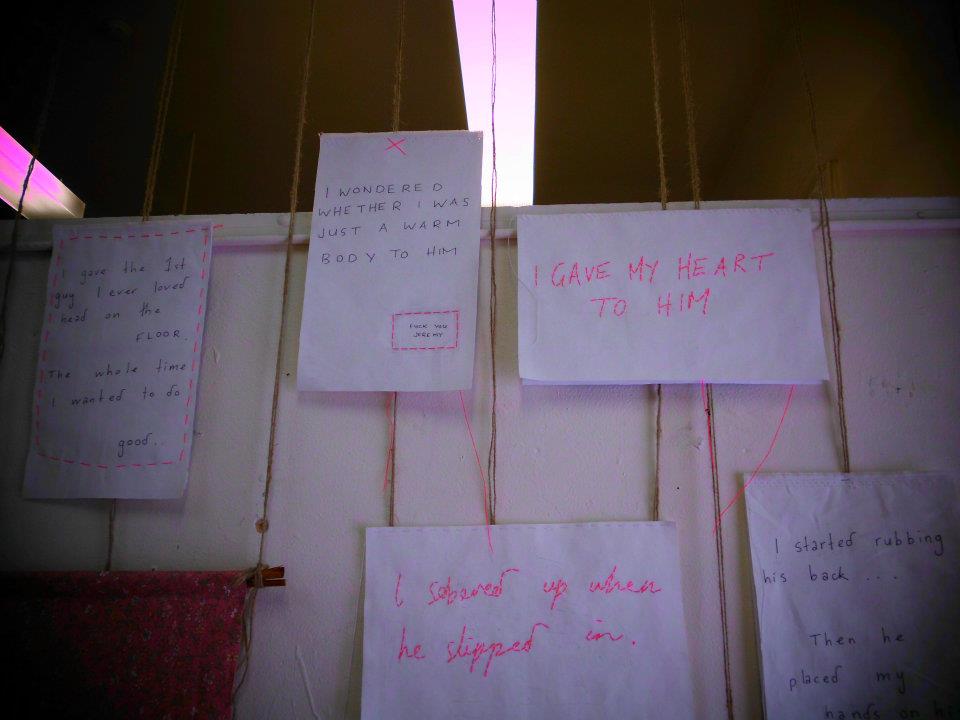 I gave the 1st
guy I ever loved
head on the
FLOOR.
The whole time
I wanted to do
good..
I WONDERED
WHETHER I WAS
JUST A WARM
BODY TO HIM
FUCK YOU
JEREMY
I GAVE MY HEART
TO HIM
I sobered up when
he slipped in.
I started rubbing
his back ...
Then he
placed my
hands on